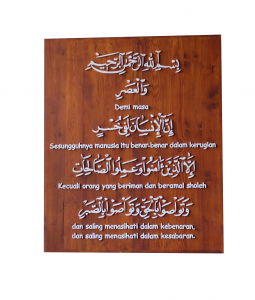 بِسْمِ اللهِ الرَّحْمَنِ الرَّحِيمِ
وَالْعَصْرِ
Demi masa
إِنَّ الْإِنسَانَ لَفِي خُسْرٍ
Sesungguhnya manusia itu benar-benar dalam kerugian
إِلَّا الَّذِينَ آمَنُوا وَعَمِلُوا الصَّالِحَاتِ
Kecuali orang yang beriman dan beramal sholeh
وَتَوَاصَوْا بِالْحَقِّ وَتَوَاصَوْا بِالصَّبْرِ
dan saling menasihati dalam kebenaran,
dan saling menasihati dalam kesabaran.